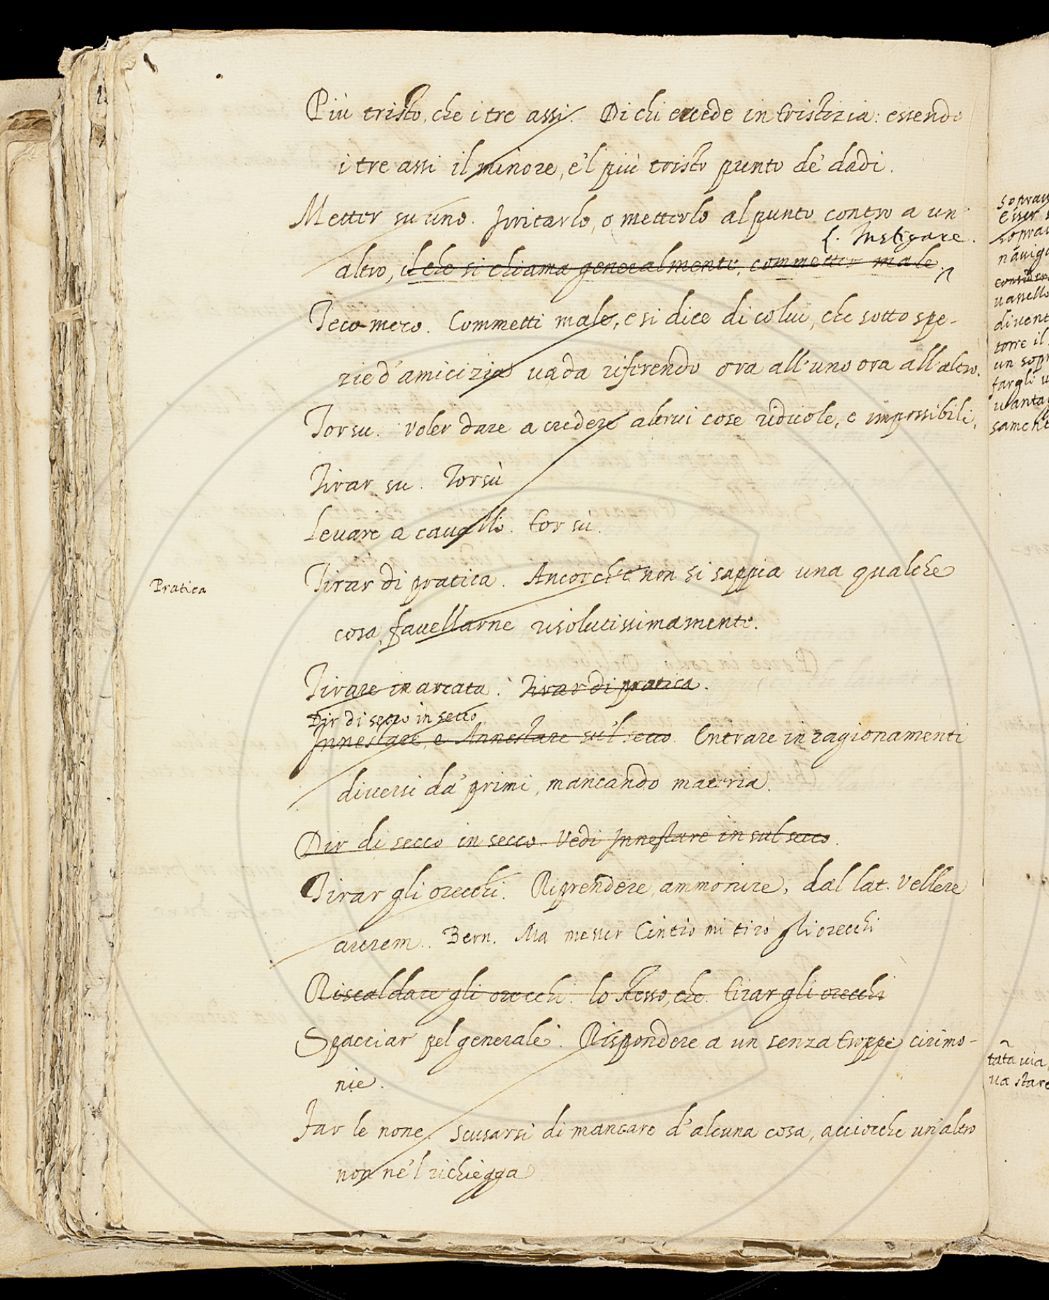 Più tristo, che i tre assi. Di chi eccede in tristizia: essendo
i tre assi il minore, e'l più tristo punto de' dadi.
Metter su uno. Irritarlo, o metterlo al punto contro a un
l. Instigare.
altro, il che si chiama generalmente, commetter male
Teco meco. Commetti male, e si dice di colui, che sotto spe-
zie d'amicizia vada riferendo ora all'uno ora all'altro.
Tor su. Voler dare a credere altrui cose ridicole, e impossibili,
Tirar su. Tor sù
Levare a cavallo. tor sù.
Pratica
Tirar di pratica. Ancorchè non si sappia una qualche
cosa, favellarne risolutissimamente.
Tirare in arcata. Tirar di pratica.
Dir di secco in secco
Innestare, e Annestare sul secco. Entrare in ragionamenti
diversi da' primi, mancando materia.
Dir di secco in secco. Vedi Innestare in sul secco.
Tirar gli orecchi. Riprendere, ammonire, dal lat. Vellere
aurem. Bern. Ma messer Cintio mi tirò gli orecchi
Riscaldare gli orecchi. lo stesso, che tirar gli orecchi
Spacciar pel generale. Rispondere a un senza troppe cirimo-
nie.
Far le none. Scusarsi di mancare d'alcuna cosa, acciocche un'altro
non ne'l richiegga